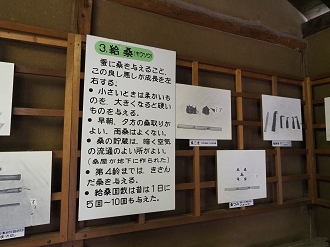 3.給桑(キウソウ)
蚕に桑を与えること、
この良し悪しが成長を左
右する。
● 小さいときは柔かいも
のを、大きくなると硬い
ものを与える。
● 早朝、夕方の桑取りが
よい、雨桑はよくない。
● 桑の貯蔵は、暗く空気
の流通のよい所がよい。
(桑屋が地下に作られた)
● 第4齢までは、きざん
だ桑を与える。
● 給桑回数は昔は1日に
5回~10回も与えた。